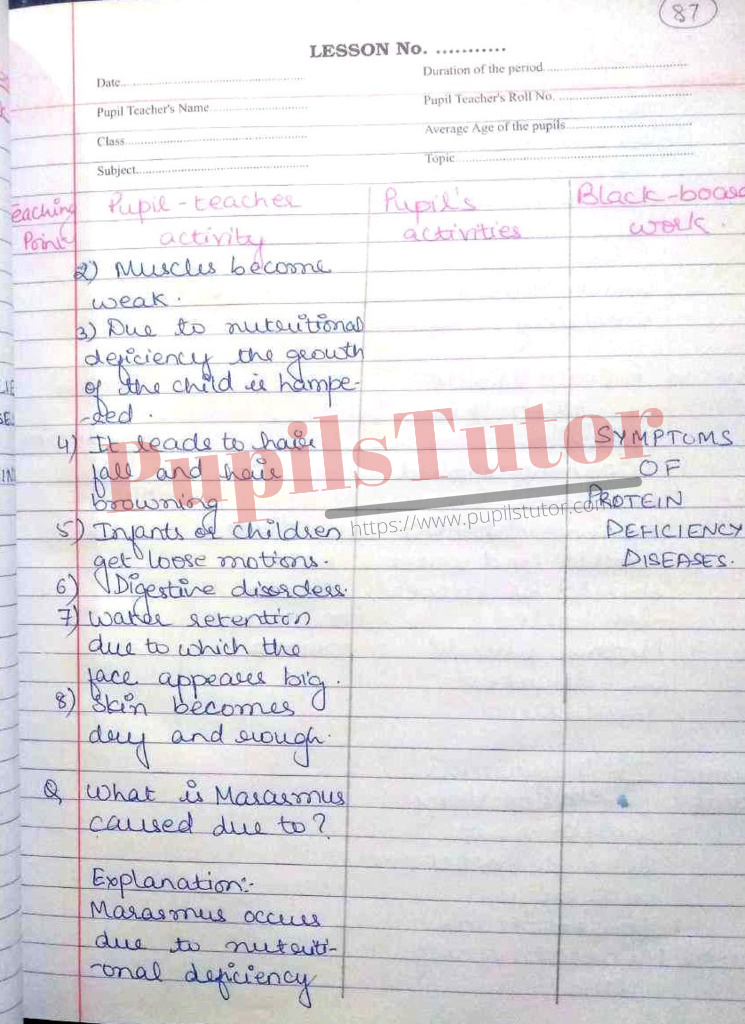 87
LESSON No. ...........
Date
Duration of the period
Pupil Teacher's Name
Pupil Teacher's Roll No.
Class
Average Age of the pupils
Subject
Topic
Teaching Points
Pupil-teacher activity
Pupil's activities
Black-board work.
2) Muscles become
weak.
3) Due to nutritional
deficiency the growth
of the child is hampe-
-red.
4) It leads to hair
fall and hair
browning
5) Infants or children
get loose motions.
6) Digestive disorders.
7) Water retention
due to which the
face appears big.
8) Skin becomes
dry and rough.
SYMPTOMS
OF
PROTEIN
DEFICIENCY
DISEASES.
Q, What is Marasmus
caused due to?
Explanation:-
Marasmus occurs
due to nutriti-
-onal deficiency
PupilsTutor
https://www.pupilstutor.com